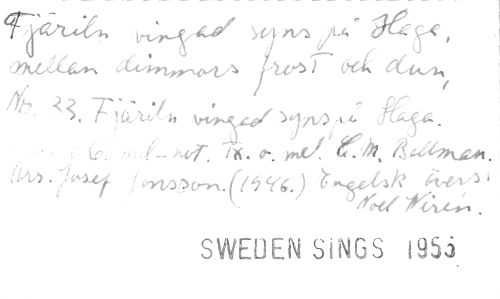 Fjäriln vingad syns på Haga,
mellan dimmors frost och dun,
No. 33. Fjäriln vingad syns på Haga.
C. mel-not. Tx. o. mel. C. M. Bellman.
Arr. Josef Jonsson. (1946.) Engelsk övers:
Noel Wirén.
SWEDEN SINGS 1955